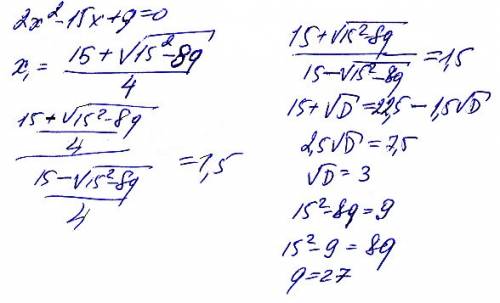 2x² - 15x + q = 0
x₁ = (15 + √(15² - 8q)) / 4
((15 + √(15² - 8q)) / 4) / ((15 - √(15² - 8q)) / 4) = 1,5
(15 + √(15² - 8q)) / (15 - √(15² - 8q)) = 1,5
15 + √D = 22,5 - 1,5√D
2,5√D = 7,5
√D = 3
15² - 8q = 9
15² - 9 = 8q
q = 27